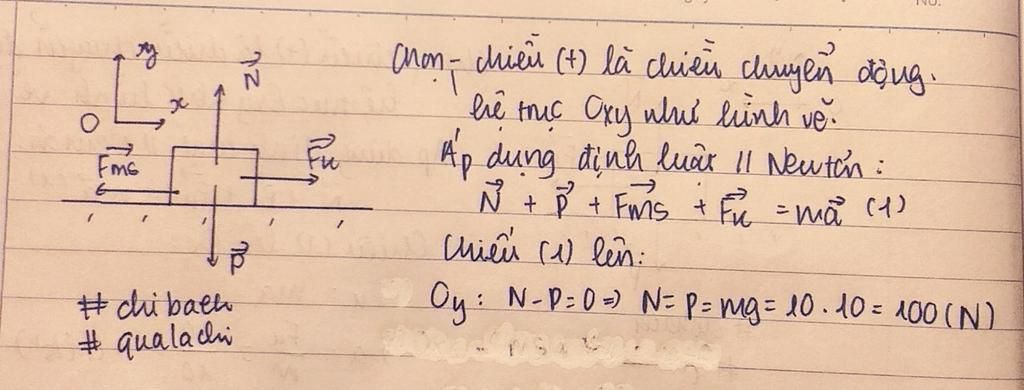 Chọn - chiều (+) là chiều chuyển động.
hệ trục Oxy như hình vẽ.
Áp dụng định luật II Newtơn:
N⃗ + P⃗ + F⃗ms + F⃗k = ma⃗ (1)
Chiếu (1) lên:
Oy: N - P = 0 => N = P = mg = 10 . 10 = 100 (N)
y
N⃗
O
x
F⃗ms
F⃗k
P⃗
# chibach
# qualachi